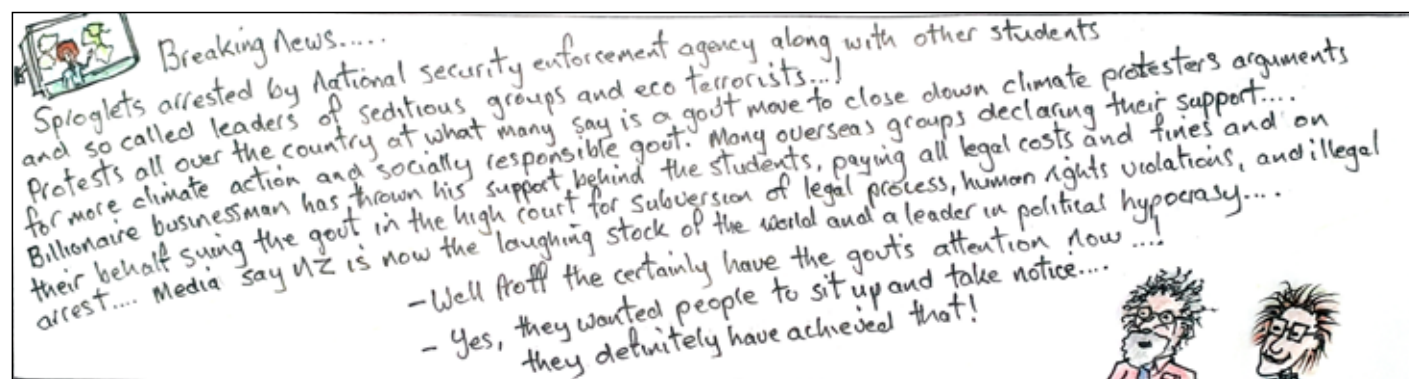 Breaking News.....
Sproglets arrested by National security enforcement agency along with other students
and so called leaders of seditious groups and eco terrorists...!
Protests all over the country at what many say is a gov't move to close down climate protesters arguments
for more climate action and socially responsible govt. Many overseas groups declaring their support....
Billionaire businessman has thrown his support behind the students, paying all legal costs and fines and on
their behalf suing the govt in the high court for subversion of legal process, human rights violations, and illegal
arrest.... Media say NZ is now the laughing stock of the world and a leader in political hypocrasy....
- Well Proff the certainly have the govt's attention now ...!
- Yes, they wanted people to sit up and take notice....
they definitely have achieved that!